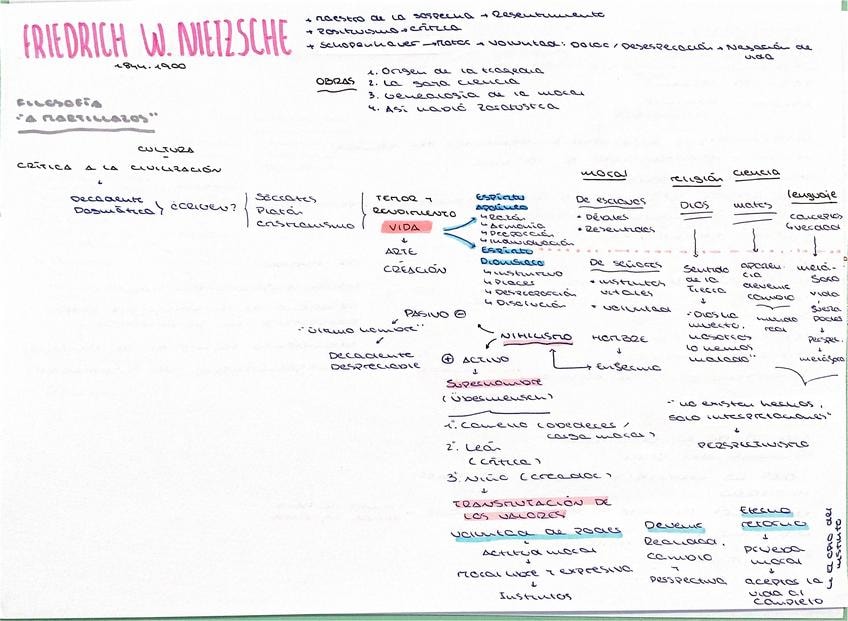 FRIEDRICH W. NIETZSCHE
1844-1900
+ maestro de la sospecha → Resentimiento
+ Positivismo → crítica
+ Schopenhauer → motor → voluntad: Dolor / Desesperación → Negación de vida
OBRAS
1. Origen de la tragedia
2. La gaya ciencia
3. Genealogía de la moral
4. Así habló Zaratustra
FILOSOFÍA
"A MARTILLAZOS"
CULTURA
CRÍTICA A LA CIVILIZACIÓN
Decadente
Dogmática
Sócrates
Platón
cristianismo
TEMOR Y
VIDA
ARTE
CREACIÓN
ESPÍRITU
APOLÍNEO
↳ Razón
↳ Armonía
↳ Individuación
ESPÍRITU
Dionisíaco
↳ instintivo
↳ Placer
↳ Desproporción
↳ Disolución
moral
De esclavos
• Débiles
• Resentidos
De señores
• instintos
vitales
• voluntad
religión
DIOS
Sentido
de la
Tierra
"Dios ha
muerto,
nosotros
lo hemos
matado"
ciencia
mates
aparien-
cia
devenir
cambio
mundo
real
lenguaje
conceptos
↳ verdad
metá-
fora
vida
fuerza
poder
perspec.
metáfora
PASIVO ⊖
"último hombre"
Decadente
Despreciable
NIHILISMO
⊕ ACTIVO
HOMBRE
Enfermo
Superhombre
(Übermensch)
1º. Camello (obedecer /
carga moral)
2º. León
(crítica)
3º. Niño (creador)
TRANSMUTACIÓN DE
LOS VALORES
"no existen hechos,
solo interpretaciones"
PERSPECTIVISMO
voluntad de poder
Actitud moral
moral libre y expresiva
Instintos
Devenir
Realidad.
cambio
y
perspectiva
Eterno
retorno
prueba
moral
aceptas la
vida al
completo